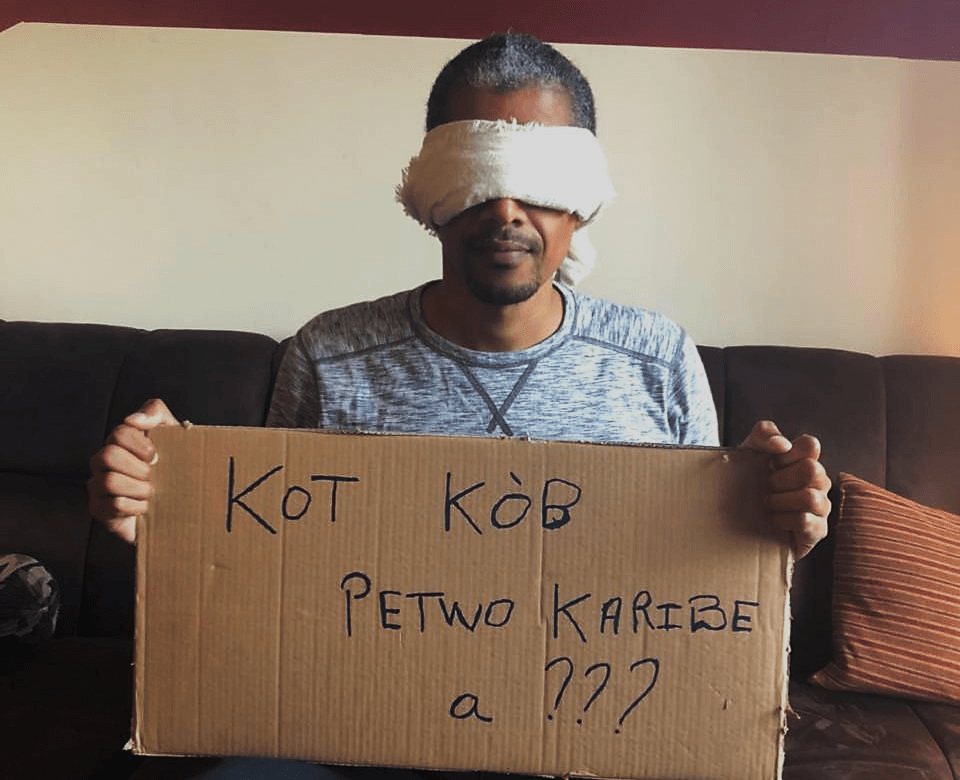 KOT KÒB
PETWO KARIBE
a ???